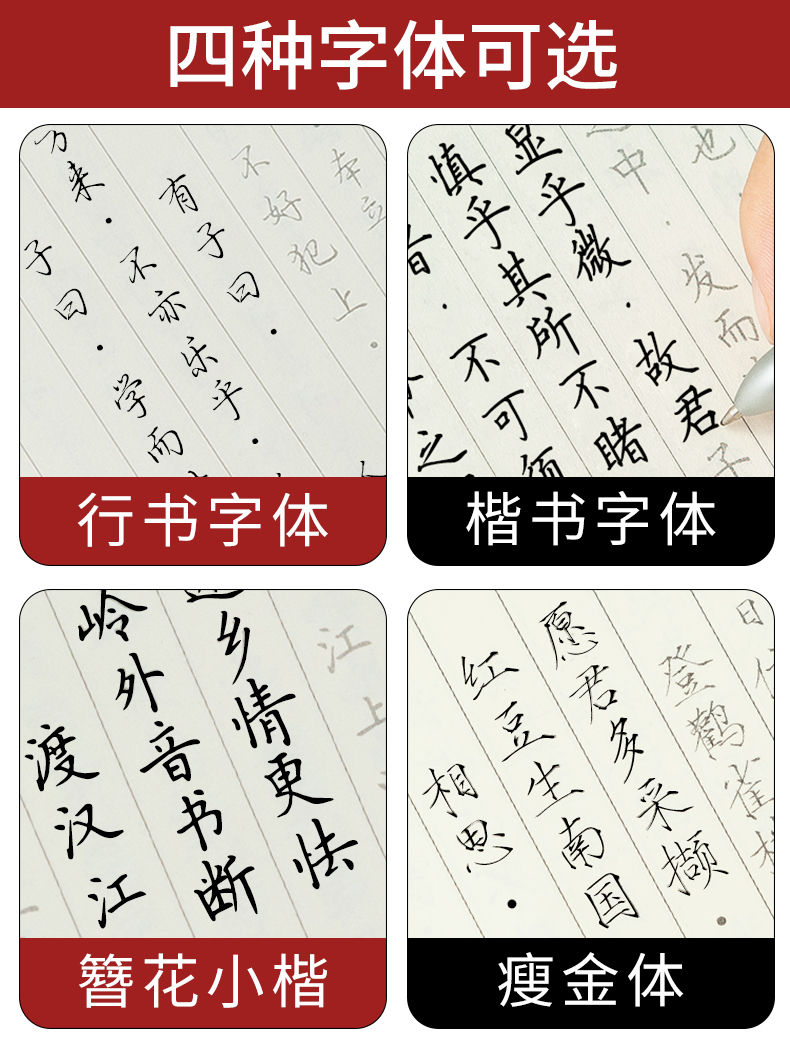 四种字体可选
子曰·学而
方来·不亦乐乎·
有子曰·
不好犯上·
本立
行书字体
之
·不可须
慎乎其所不睹
显乎微·故君子
中 发而
也
楷书字体
渡汉江
岭外音书断
乡情更怯
江上
簪花小楷
相思·
红豆生南国
愿君多采撷·
登鹳雀楼
日依
瘦金体